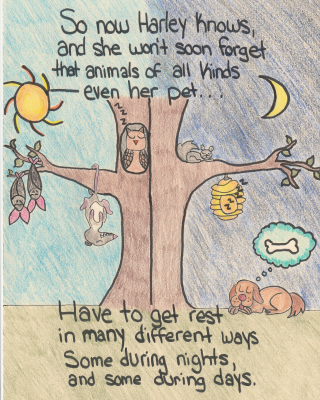 So now Harley knows,
and she won't soon forget
that animals of all kinds
– even her pet...
zzz
zzz
Have to get rest
in many different ways
Some during nights,
and some during days.